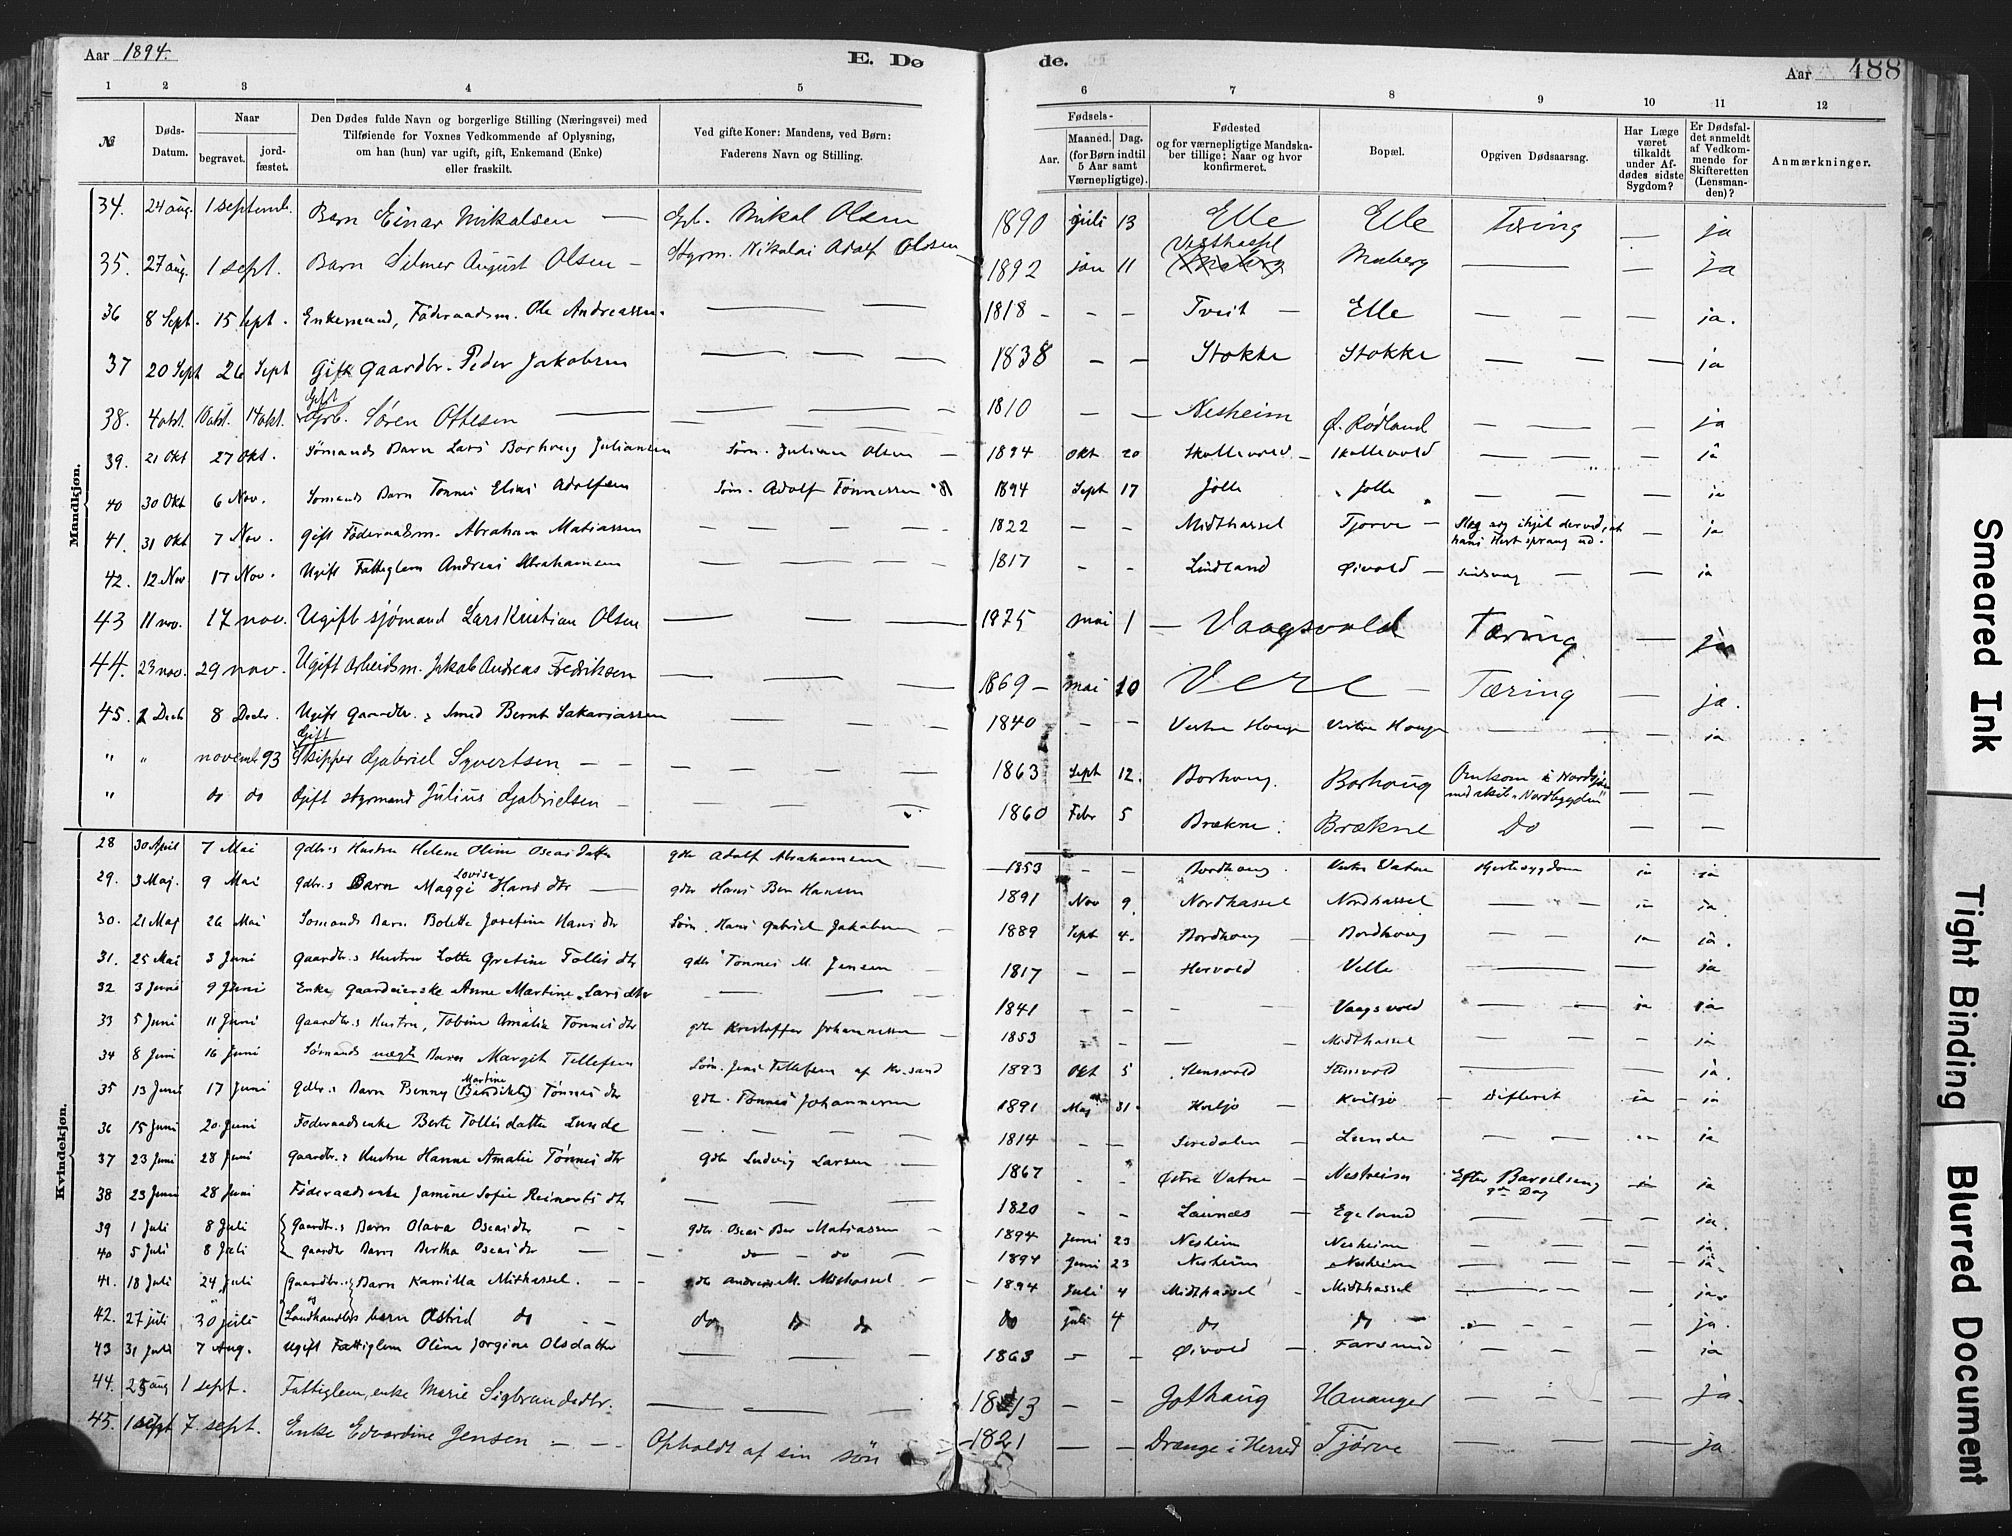 Aar 1894. E. Dø
de. Aar 488
1 2 3 4 5
6 7 8 9 10 11 12
№ Døds-Datum. Naar begravet. jord-fæstet. Den Dødes fulde Navn og borgerlige Stilling (Næringsvei) med Tilføiende for Voxnes Vedkommende af Oplysning, om han (hun) var ugift, gift, Enkemand (Enke) eller fraskilt. Ved gifte Koner: Mandens, ved Børn: Faderens Navn og Stilling.
Fødsels- Aar. Maaned. Dag. (for Børn indtil 5 Aar samt Værnepligtige). Fødested og for værnepligtige Mandskaber tillige: Naar og hvor konfirmeret. Bopæl. Opgiven Dødsaarsag. Har Læge været tilkaldt under Afdødes sidste Sygdom? Er Dødsfaldet anmeldt af Vedkommende for Skifteretten (Lensmanden)? Anmærkninger.
Mandkjøn.
34. 24 aug. 1 septemb. Barn Einar Mikalsen — Gb. Mikal Olsen 1890 juli 13 Elle Elle Tæring — ja
35. 27 aug. 1 sept. Barn Silmer August Olsen — Styrm. Nikolai Adolf Olsen 1892 jan 11 Vesthassel Maberg — — ja
36 8 Sept. 15 sept. Enkemand, Føderaadsm. Ole Andreassen. — — 1818 - - - Tveit — Elle — — — ja.
37 20 Sept 26 Sept Gift gaardbr. Peder Jakobsen — — — 1838 — — Stokke Stokke — — — ja
38. 4 okt. 10 okt. 14 okt. Gift Grb. Søren Ottesen — — — — 1810 — — Nesheim Ø. Rødland — — — ja
39. 21 Okt 27 Okt. Sømands Barn Lars Borhoug Juliansen Søm. Julian Olsen — 1894 Okt 20 Skollevold - Skollevold — — — ja
40 30 Okt 6 Nov. Sømands Barn Tønnes Elias Adolfsen Søm. Adolf Tønnessen 1894 Sept 17 Jølle Jølle — — — ja
41. 31 Okt 7 Nov. Gift Føderaadsm. Abraham Matiassen — — — — 1822 - - Midthassel Tjørve — Slog sig ihjel derved, at hans Hest sprang ud. — ja
42. 12 Nov. 17 Nov. Ugift Fattiglem Andreas Abrahamsen — — — 1817 - - Lindland Øivold — sindsvag — — ja
43 11 nov. 17 nov. Ugift sjømand Lars Kristian Olsen — — — 1875 mai 1 — Vaagsvold Tæring — ja
44. 23 nov. 29 nov. Ugift Arbeidsm. Jakob Andreas Fredriksen — — — 1869 — mai 10 Vere — Tæring — ja.
45. 2 Decb 8 Decbr. Ugift gaardbr. & Smed Bernt Sakariassen — — — 1840 - - Vestre Hauge Vestre Hauge — — — ja
" " november 93 Gift Skipper Gabriel Syvertsen — — — — — 1863 Sept 12. Borhoug. Borhoug Omkom i Nordsjøen med skib „Nordbygden" — —
" do do Gift styrmand Julius Gabrielsen — — — — 1860 Febr 5 Brækne. Brækne Do — —
Kvindekjøn.
28 30 April 7 Mai gdbr.s Hustru Helene Oline Oscarsdatter gdbr Adolf Abrahamsen — 1853 - - Bordhoug. Vestre Vatne Hjertesygdom ja ja
29. 3 Maj. 9 Mai gdbr.s Barn Maggi Lovise Hansdtr — gdbr Hans Ben Hansen 1891 Nov 9. Nordhassel Nordhassel — — ja ja.
30. 21 Maj 26 Mai Sømands Barn Bolette Josefine Hansdtr Søm. Hans Gabriel Jakobsen — 1889 Sept 4. Bordhoug — Bordhoug — — ja ja.
31. 25 Mai 3 Juni gaardbr.s Hustru Lotte Gretine Tollisdtr gdbr Tønnes M. Jensen — 1817 - - Hervold Velle — — ja
32 3 Juni 9 Juni Enke gaardeierske Anne Martine Larsdtr — — — 1841 - - - - Vaagsvold — — ja ja
33 5 Juni 11 Juni gaardbr.s Hustru, Tobine Amalia Tønnesdtr gdbr Kristoffer Johannessen — 1853 - - — — Midthassel — — — ja
34 8 Juni 16 Juni Sømands uægte Barn Margit Tellefsen Søm. Jens Tellefsen af Kr.sand 1893 Okt 5 Stensvold Stensvold — — ja.
35 13 Juni 17 Juni gdbr.s Barn Benny Martine (Benedikte) Tønnesdtr gdbr. Tønnes Johannesen 1891 Maj 31. Kvilsjø — Kvilsjø — Difterit ja — ja
36 15 Juni 20 Juni Føderaadsenke Berte Tollisdatter Lunde — — — — 1814 — — Siredalen — Lunde — — — ja
37 23 Juni 28 Juni gaardbr.s Hustru Hanne Amalie Tønnesdtr gdbr Ludvig Larsen — 1867 - - Østre Vatne — Nesheim Efter Barselseng 9de Dag ja ja
38 23 Juni 28 Juni Føderaadsenke Jamine Sofie Reinertsdtr — — — 1820 - - Launes — Egeland — — — ja.
39 1 Juli 8 Juli gaardbr.s Barn Olava Oscarsdtr — — gdbr. Oscar Ber Matiassen — 1894 Juni 23 Nesheim Nesheim — — — ja
40 5 Juli 8 Juli gaardbr Barn Bertha Oscarsdtr — — do — do — 1894 Juni 23 Nesheim Nesheim — — — ja.
41. 18 Juli 24 Juli gaardbr.s Barn Kamilla Midthassel. — — gdbr Andreas M. Midthassel — 1894 Juli 4 Midthassel - Midthassel — — ja.
42. 27 juli 30 juli og Landhandlers barn Astrid do — — do do do do juli 4 do do — — — — ja.
43 31 Juli 7 Aug. Ugift Fattiglem Oline Jorgine Olsdatter — — — 1863 - - Øivold — Farsund — — — ja
44. 25 aug 1 sept. Fattiglem, enke Marie Sigbrandsdtr. — — — 1813 — — Gothaug Hananger — — — ja.
45. 1 sept 7. sept. Enke Edvardine Jensen — — — Opholdt af sin søn 1821 — — Drange i Herred Tjørve — — — ja
Smeared Ink
Tight Binding
Blurred Document